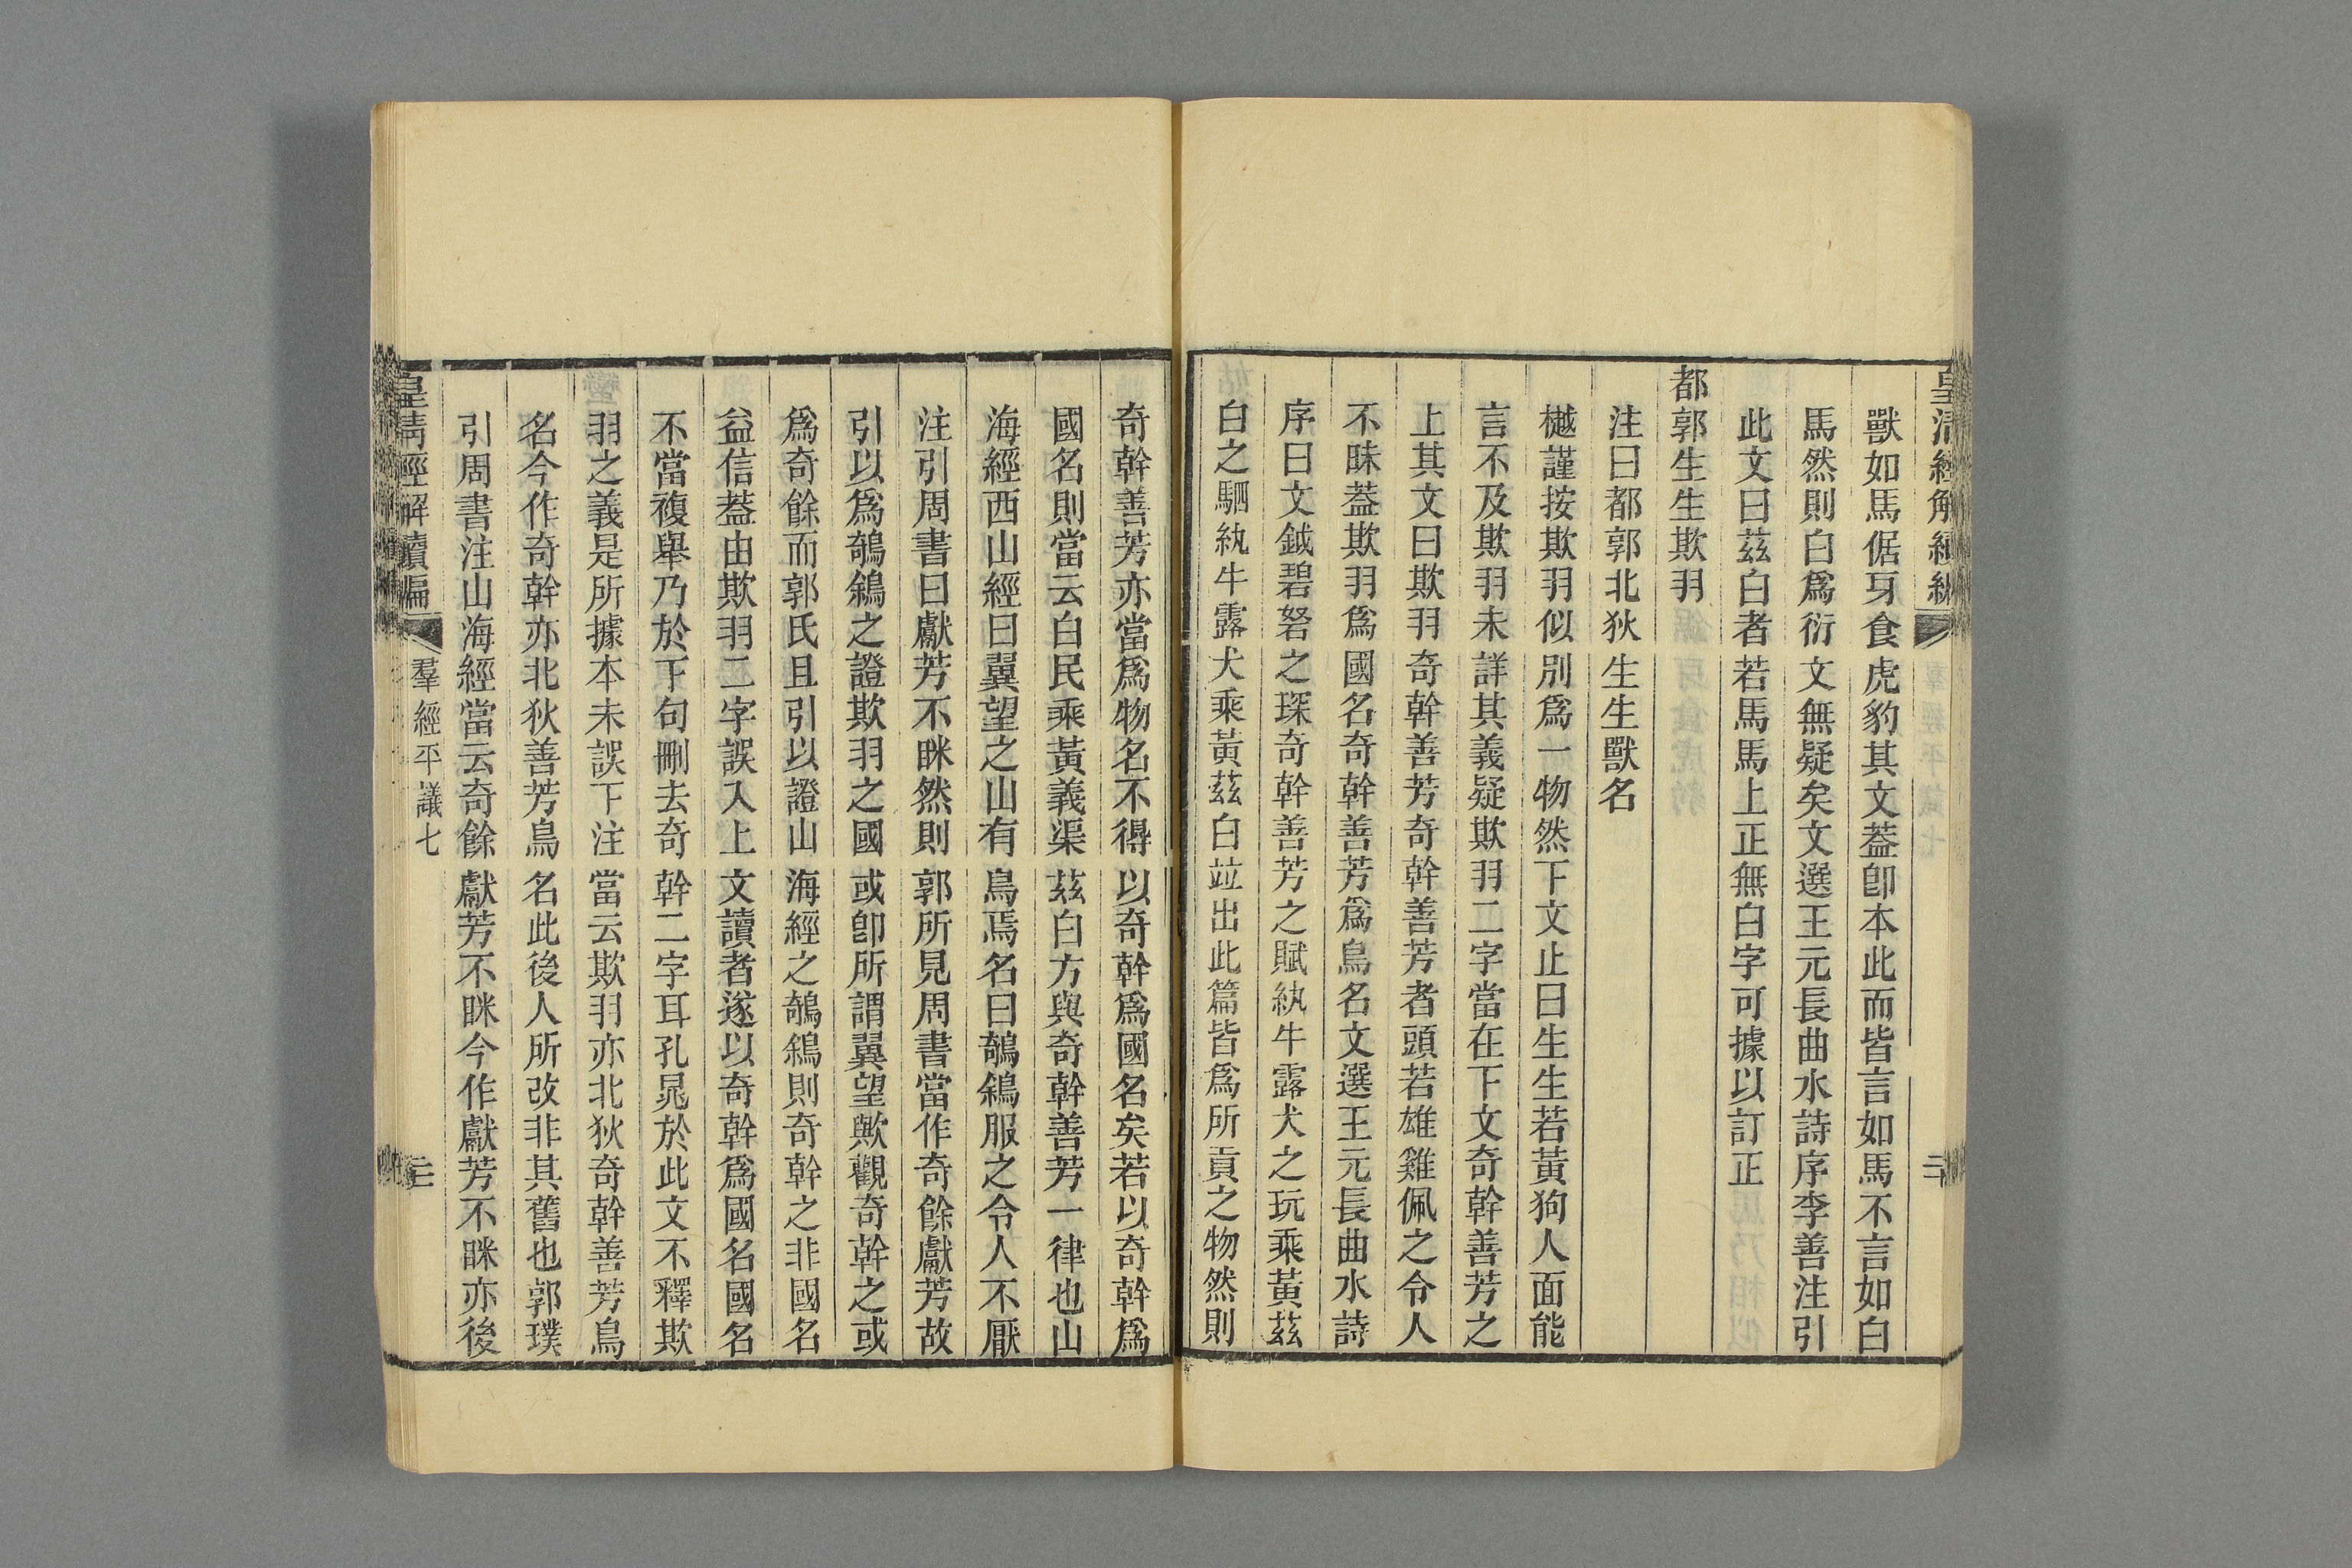 皇清經解續編
獸如馬倨牙食虎豹其文葢卽本此而皆言如馬不言如白
馬然則白爲衍文無疑矣文選王元長曲水詩序李善注引
此文曰茲白者若馬馬上正無白字可據以訂正
都郭生生欺羽
注曰都郭北狄生生獸名
樾謹按欺羽似別爲一物然下文止曰生生若黃狗人面能
言不及欺羽未詳其義疑欺羽二字當在下文奇幹善芳之
上其文曰欺羽奇幹善芳奇幹善芳者頭若雄雞佩之令人
不昧葢欺羽爲國名奇幹善芳爲鳥名文選王元長曲水詩
序曰文鉞碧砮之琛奇幹善芳之賦紈牛露犬之玩乘黃茲
白之駟紈牛露犬乘黃茲白竝出此篇皆爲所貢之物然則
奇幹善芳亦當爲物名不得以奇幹爲國名矣若以奇幹爲
國名則當云白民乘黃義渠茲白方與奇幹善芳一律也山
海經西山經曰翼望之山有鳥焉名曰鵸鵌服之令人不厭
注引周書曰獻芳不眯然則郭所見周書當作奇餘獻芳故
引以爲鵸鵌之證欺羽之國或卽所謂翼望歟觀奇幹之或
爲奇餘而郭氏且引以證山海經之鵸鵌則奇幹之非國名
益信葢由欺羽二字誤入上文讀者遂以奇幹爲國名國名
不當複舉乃於下句刪去奇幹二字耳孔晁於此文不釋欺
羽之義是所據本未誤下注當云欺羽亦北狄奇幹善芳鳥
名今作奇幹亦北狄善芳鳥名此後人所改非其舊也郭璞
引周書注山海經當云奇餘獻芳不眯今作獻芳不眯亦後
皇淸經解續編
羣經平議七